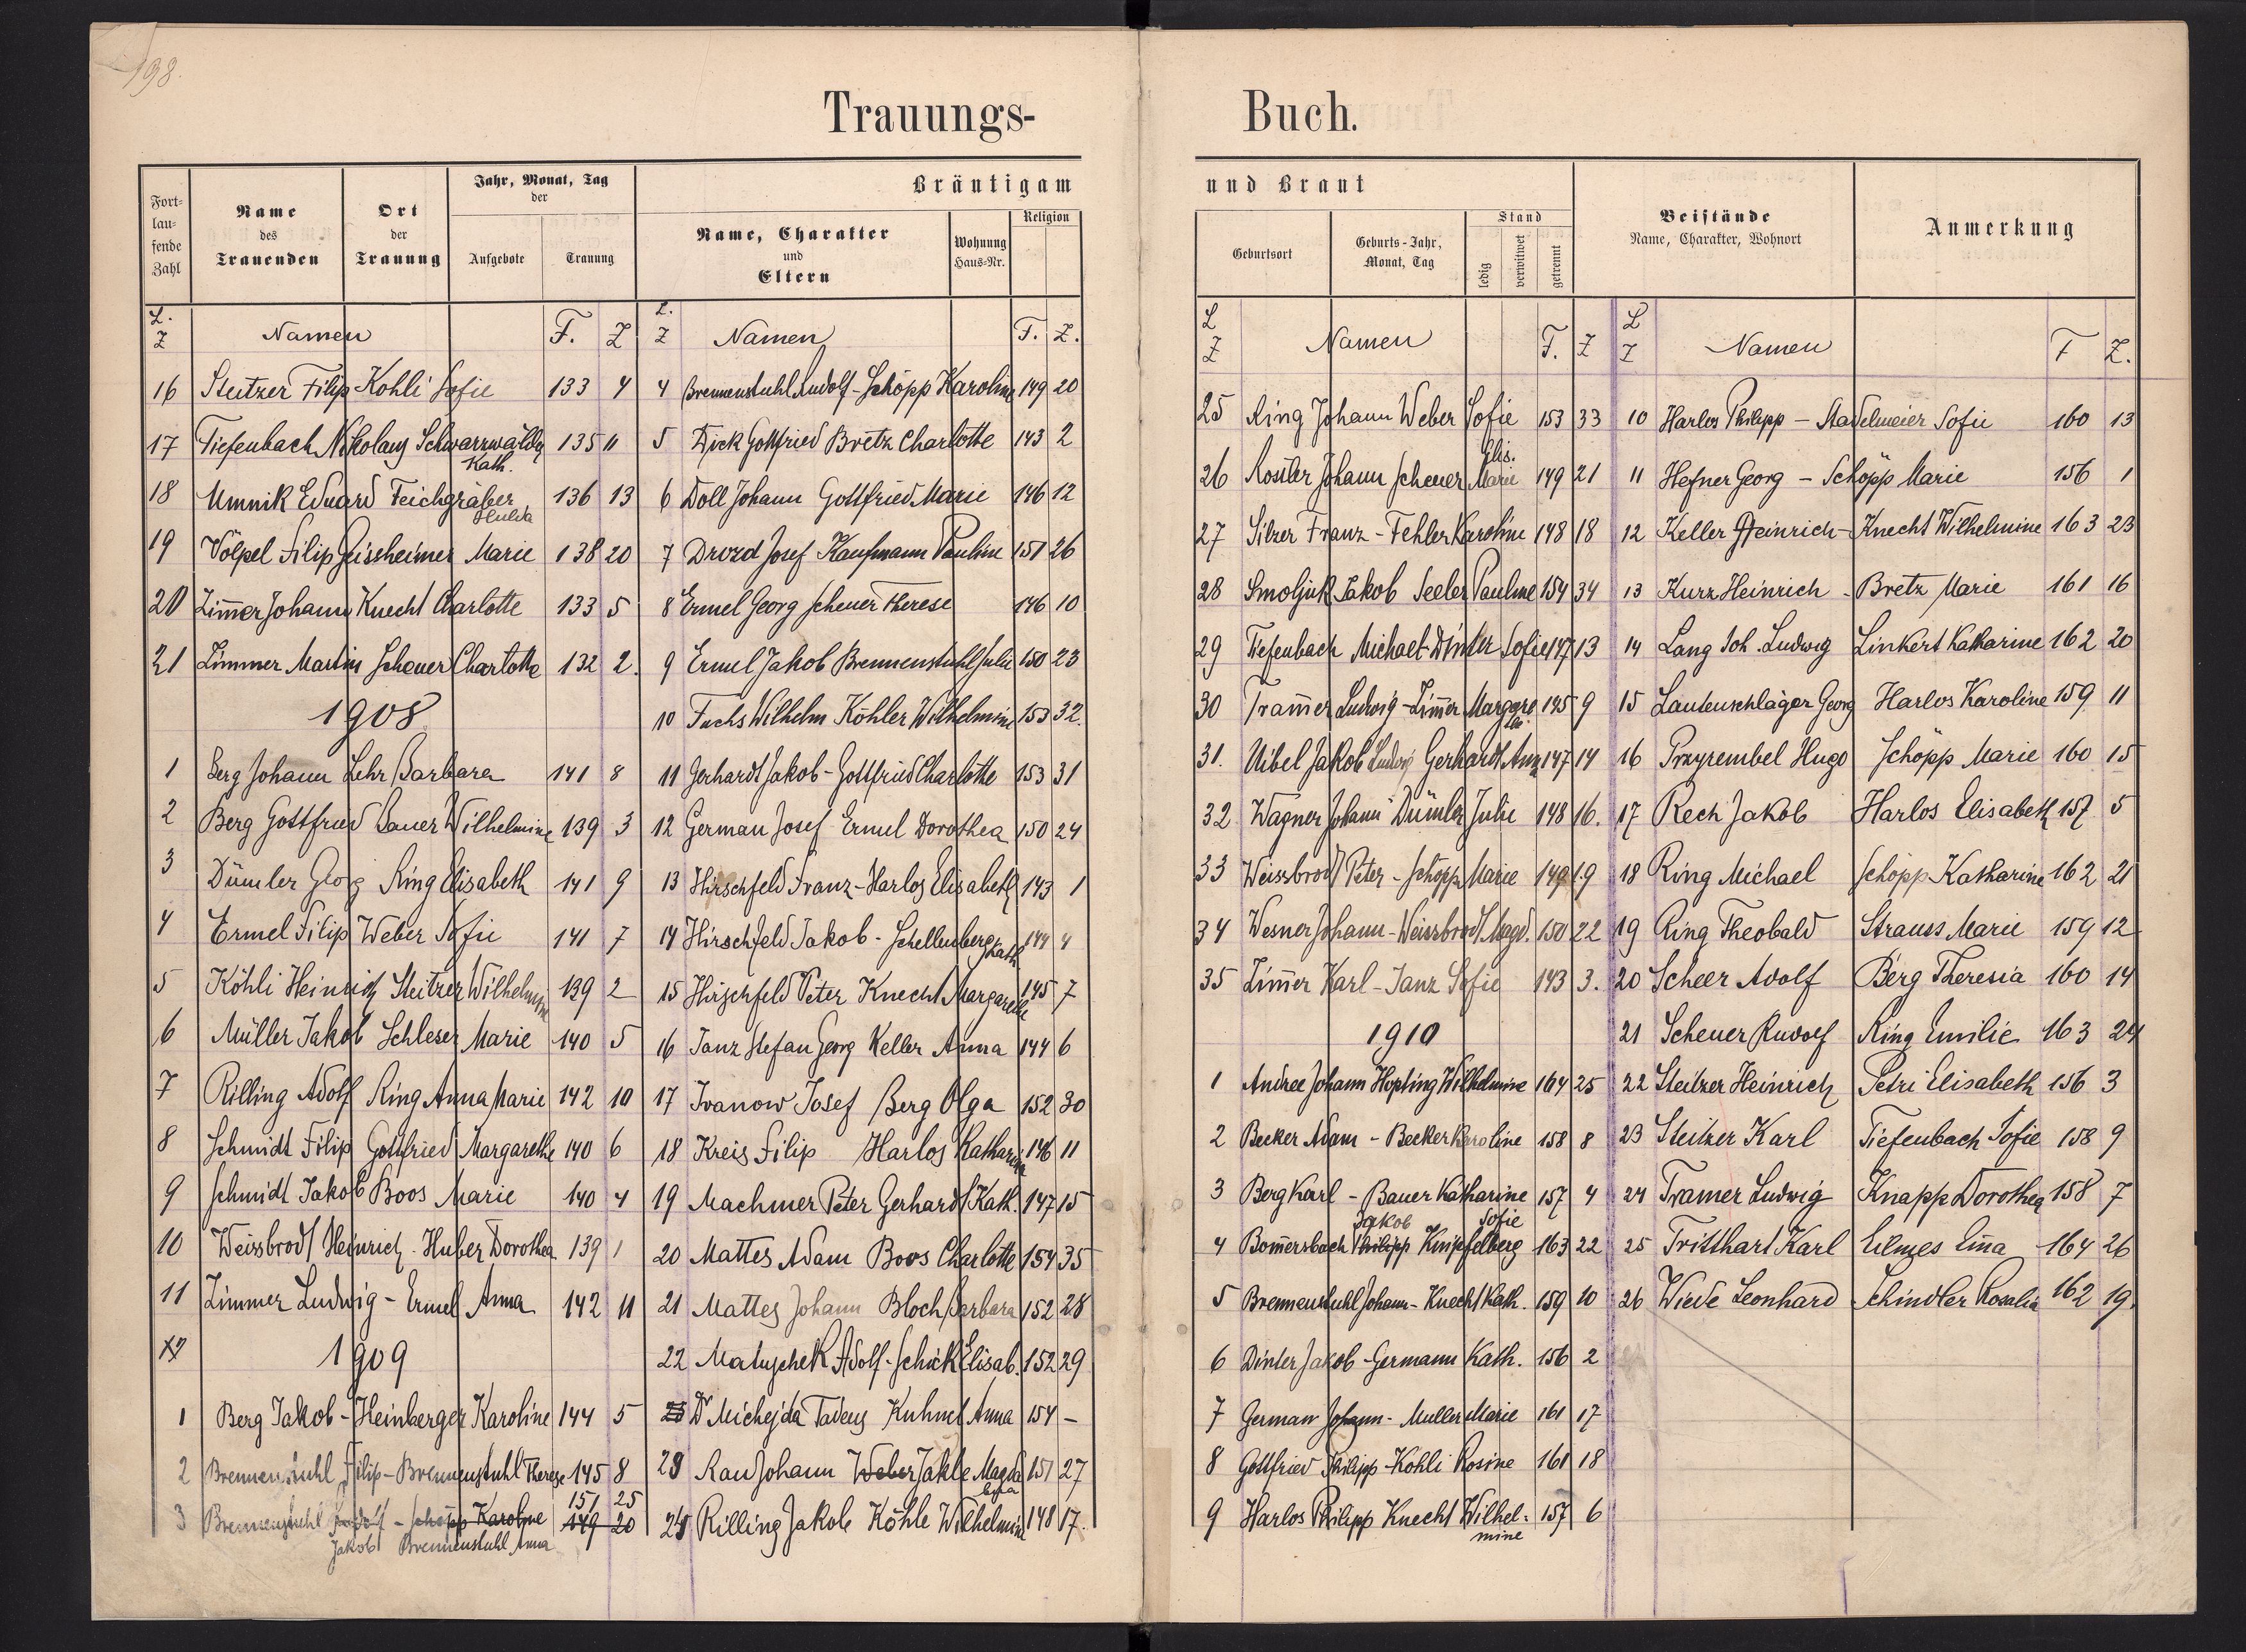 198.
Trauungs-
Fort-
lau-
fende
Zahl
Name
des
Trauenden
Ort
der
Trauung
Jahr, Monat, Tag
der
Aufgebote
Trauung
Bräutigam
Name, Charakter
und
Eltern
Wohnung
Haus-Nr.
Religion
L.
Z
Namen
F. Z
16 Steitzer Filip Kohli Sofie 133 4
17 Tiefenbach Nikolaus Schwarzwälder 135 11
Kath.
18 Umnik Eduard Teichgräber 136 13
Hulda
19 Volpel Filip Geissheimer Marie 138 20
20 Zim̄er Johann Knecht Charlotte 133 5
21 Zimmer Martin Scheuer Charlotte 132 2.
1908
1 Berg Johann Lehr Barbara 141 8
2 Berg Gottfried Bauer Wilhelmine 139 3
3 Dümler Georg Ring Elisabeth 141 9
4 Ermel Filip Weber Sofie 141 7
5 Köhli Heinrich Steitzer Wilhelmine 139 2
6 Müller Jakob Schleser Marie 140 5
7 Rilling Adolf Ring Anna Marie 142 10
8 Schmidt Filip Gottfried Margarethe 140 6
9 Schmidt Jakob Boos Marie 140 4
10 Weissbrodt Heinrich Huber Dorothea 139 1
11 Zimmer Ludwig - Ermel Anna 142 11
1909
1 Berg Jakob - Heinberger Karoline 144 5
2 Brennenstuhl Filip - Brennenstuhl Therese 145 8
151 25
3 Brennenstuhl Rudolf - Schöpp Karoline 149 20
Jakob Brennenstuhl Anna
L.
Z
Namen
F. Z.
4 Brennenstuhl Rudolf - Schöpp Karoline 149 20
5 Dick Gottfried Bretz Charlotte 143 2
6 Doll Johann Gottfried Marie 146 12
7 Drozd Josef Kaufmann Pauline 151 26
8 Ermel Georg Scheuer Therese 146 10
9 Ermel Jakob Brennenstuhl Julie 150 23
10 Fuchs Wilhelm Köhler Wilhelmine 153 32.
11 Gerhardt Jakob - Gottfried Charlotte 153 31
12 German Josef Ermel Dorothea 150 24
13 Hirschfeld Franz - Harlos Elisabeth 143 1
14 Hirschfeld Jakob - Schellenberg Kath 144 4
15 Hirschfeld Peter Knecht Margarethe 145 7
16 Janz Stefan Georg Keller Anna 144 6
17 Ivanow Josef Berg Olga 152 30
18 Kreis Filip Harlos Katharine 146 11
19 Machmer Peter Gerhardt Kath. 147 15
20 Mattes Adam Boos Charlotte 154 35
21 Mattes Johann Bloch Barbara 152 28
22 Matuschek Adolf - Schick Elisab. 152 29
23 Dr Michejda Tadeus Kuhnel Anna 154 -
23 Rau Johann Weber Jakle Magda 151 27
lena
24 Rilling Jakob Köhle Wilhelmine 148 17.
Buch.
und Braut
Geburtsort
Geburts-Jahr,
Monat, Tag
Stand
ledig
verwitwet
getrennt
Beistände
Name, Charakter, Wohnort
Anmerkung
L
Z
Namen
F. Z
25 Ring Johann Weber Sofie 153 33
Elis.
26 Rossler Johann Scheuer Marie 149 21
27 Silzer Franz - Fehler Karoline 148 18
28 Smoljuk Jakob Seeler Pauline 154 34
29 Tiefenbach Michael - Dinter Sofie 147 13
30 Tram̄er Ludwig - Zim̄er Margare 145 9
31. Uibel Jakob Ludwig Gerhardt Anna 147 14
32 Wagner Johann Dümler Julie 148 16.
33 Weissbrodt Peter - Schöpp Marie 149 19
34 Wesner Johann - Weissbrodt Magd. 150 22
35 Zim̄er Karl - Janz Sofie 143 3.
1910
1 Andree Johann Hopfing Wilhelmine 164 25
2 Becker Adam - Becker Karoline 158 8
3 Berg Karl - Bauer Katharine 157 4
Jakob Sofie
4 Bom̄ersbach Philipp Knipfelberg 163 22
5 Brennenstuhl Johann - Knecht Kath. 159 10
6 Dinter Jakob - Germann Kath. 156 2
7 German Johann - Muller Marie 161 17
8 Gottfried Philipp - Köhli Rosine 161 18
9 Harlos Philipp Knecht Wilhel- 157 6
mine
L
Z
Namen
F Z.
10 Harlos Philipp - Stadelmeier Sofie 160 13
11 Hefner Georg - Schöpp Marie 156 1
12 Keller Heinrich - Knecht Wilhelmine 163 23
13 Kurz Heinrich - Bretz Marie 161 16
14 Lang Joh. Ludwig Linkert Katharine 162 20
15 Lautenschläger Georg Harlos Karoline 159 11
16 Przyrembel Hugo Schöpp Marie 160 15
17 Rech Jakob Harlos Elisabeth 157 5
18 Ring Michael Schöpp Katharine 162 21
19 Ring Theobald Strauss Marie 159 12
20 Scheer Adolf Berg Theresia 160 14
21 Scheuer Rudolf Ring Emilie 163 24
22 Steitzer Heinrich Petri Elisabeth 156 3
23 Steitzer Karl Tiefenbach Sofie 158 9
24 Tramer Ludwig Knapp Dorothea 158 7
25 Tritthart Karl Eilmes Em̄a 164 26
26 Wiede Leonhard Schindler Rosalia 162 19.